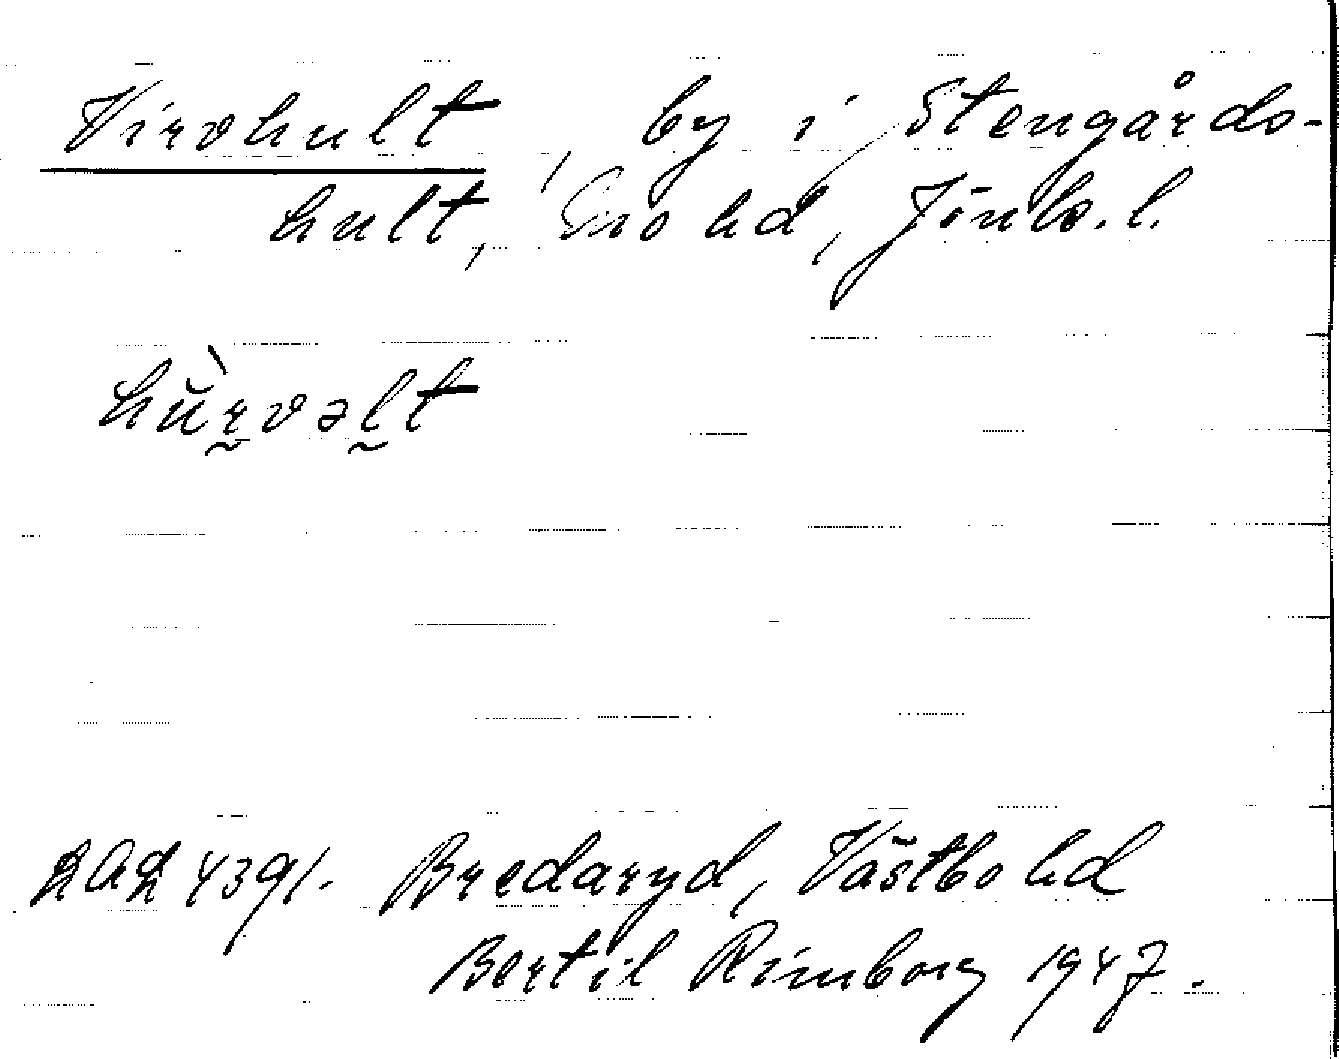 Virvhult, by i Stengårds-
hult, Mo hd, Jönk. l.
hùrvəlt
4391. Bredaryd, Västbo hd
Bertil Rimborg 1947.